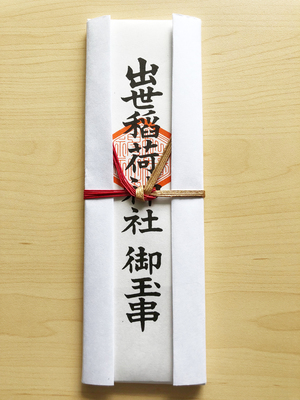 出世稲荷神社 御玉串